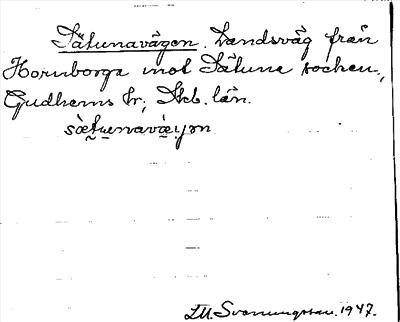 Sätunavägen. Landsväg från
Hornborga mot Sätuna socken,
Gudhems hr, Skb. län.
sætunavæ̱yən
LM. Svenungsson. 1947.